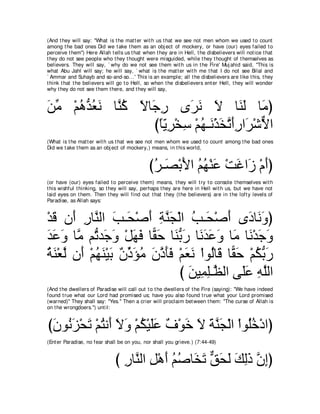 (And they will say: "What is the matter with us that we see not men whom we used to count
among the bad ones Did we take them as an object of mockery, or have (our) eyes failed to
perceive them'') Here Allah tells us that when they are in Hell, the disbelievers will notice that
they do not see people who they thought were misguided, while they thought of themselves as
believers. They will say, `why do we not see them with us in the Fire' Mujahid said, "This is
what Abu Jahl will say; he will say, `what is the matter with me that I do not see Bilal and
`Ammar and Suhayb and so-and-so...' This is an example; all the disbelievers are like this, they
think that the believers will go to Hell, so when the disbelievers enter Hell, they will wonder
why they do not see them there, and they will say,
مَا لَنَا لاَ نَرَى رِجَالاً كُنَّا نَعُدُّهُمْ مِّنَ
الاٌّشْرَارِأَتَّخَذْنَـهُمْ سِخْرِيّاً)
(What is the matter with us that we see not men whom we used to count among the bad ones
Did we take them as an object of mockery,) means, in this world,
(أَمْ زَاغَتْ عَنْهُمُ الأَبْصَـرُ)
(or have (our) eyes failed to perceive them) means, they will try to console themselves with
this wishful thinking, so they will say, perhaps they are here in Hell with us, but we have not
laid eyes on them. Then they will find out that they (the believers) are in the lofty levels of
Paradise, as Allah says:
(وَنَادَى أَصْحَـبُ الْجَنَّةِ أَصْحَـبَ النَّارِ أَن قَدْ
وَجَدْنَا مَا وَعَدَنَا رَبُّنَا حَقًّا فَهَلْ وَجَدتُّم مَّا وَعَدَ
رَبُّكُمْ حَقًّا قَالُواْ نَعَمْ فَأَذَّنَ مُؤَذِّنٌ بَيْنَهُمْ أَن لَّعْنَةُ
اللَّهِ عَلَى الظَّـلِمِينَ )
(And the dwellers of Paradise will call out to the dwellers of the Fire (saying): "We have indeed
found true what our Lord had promised us; have you also found true what your Lord promised
(warned)'' They shall say: "Yes." Then a crier will proclaim between them: "The curse of Allah is
on the wrongdoers.'') until:
(ادْخُلُواْ الْجَنَّةَ لاَ خَوْفٌ عَلَيْكُمْ وَلاَ أَنتُمْ تَحْزَنُونَ)
(Enter Paradise, no fear shall be on you, nor shall you grieve.) (7:44-49)
إِنَّ ذَلِكَ لَحَقٌّ تَخَاصُمُ أَهْلِ النَّارِ )